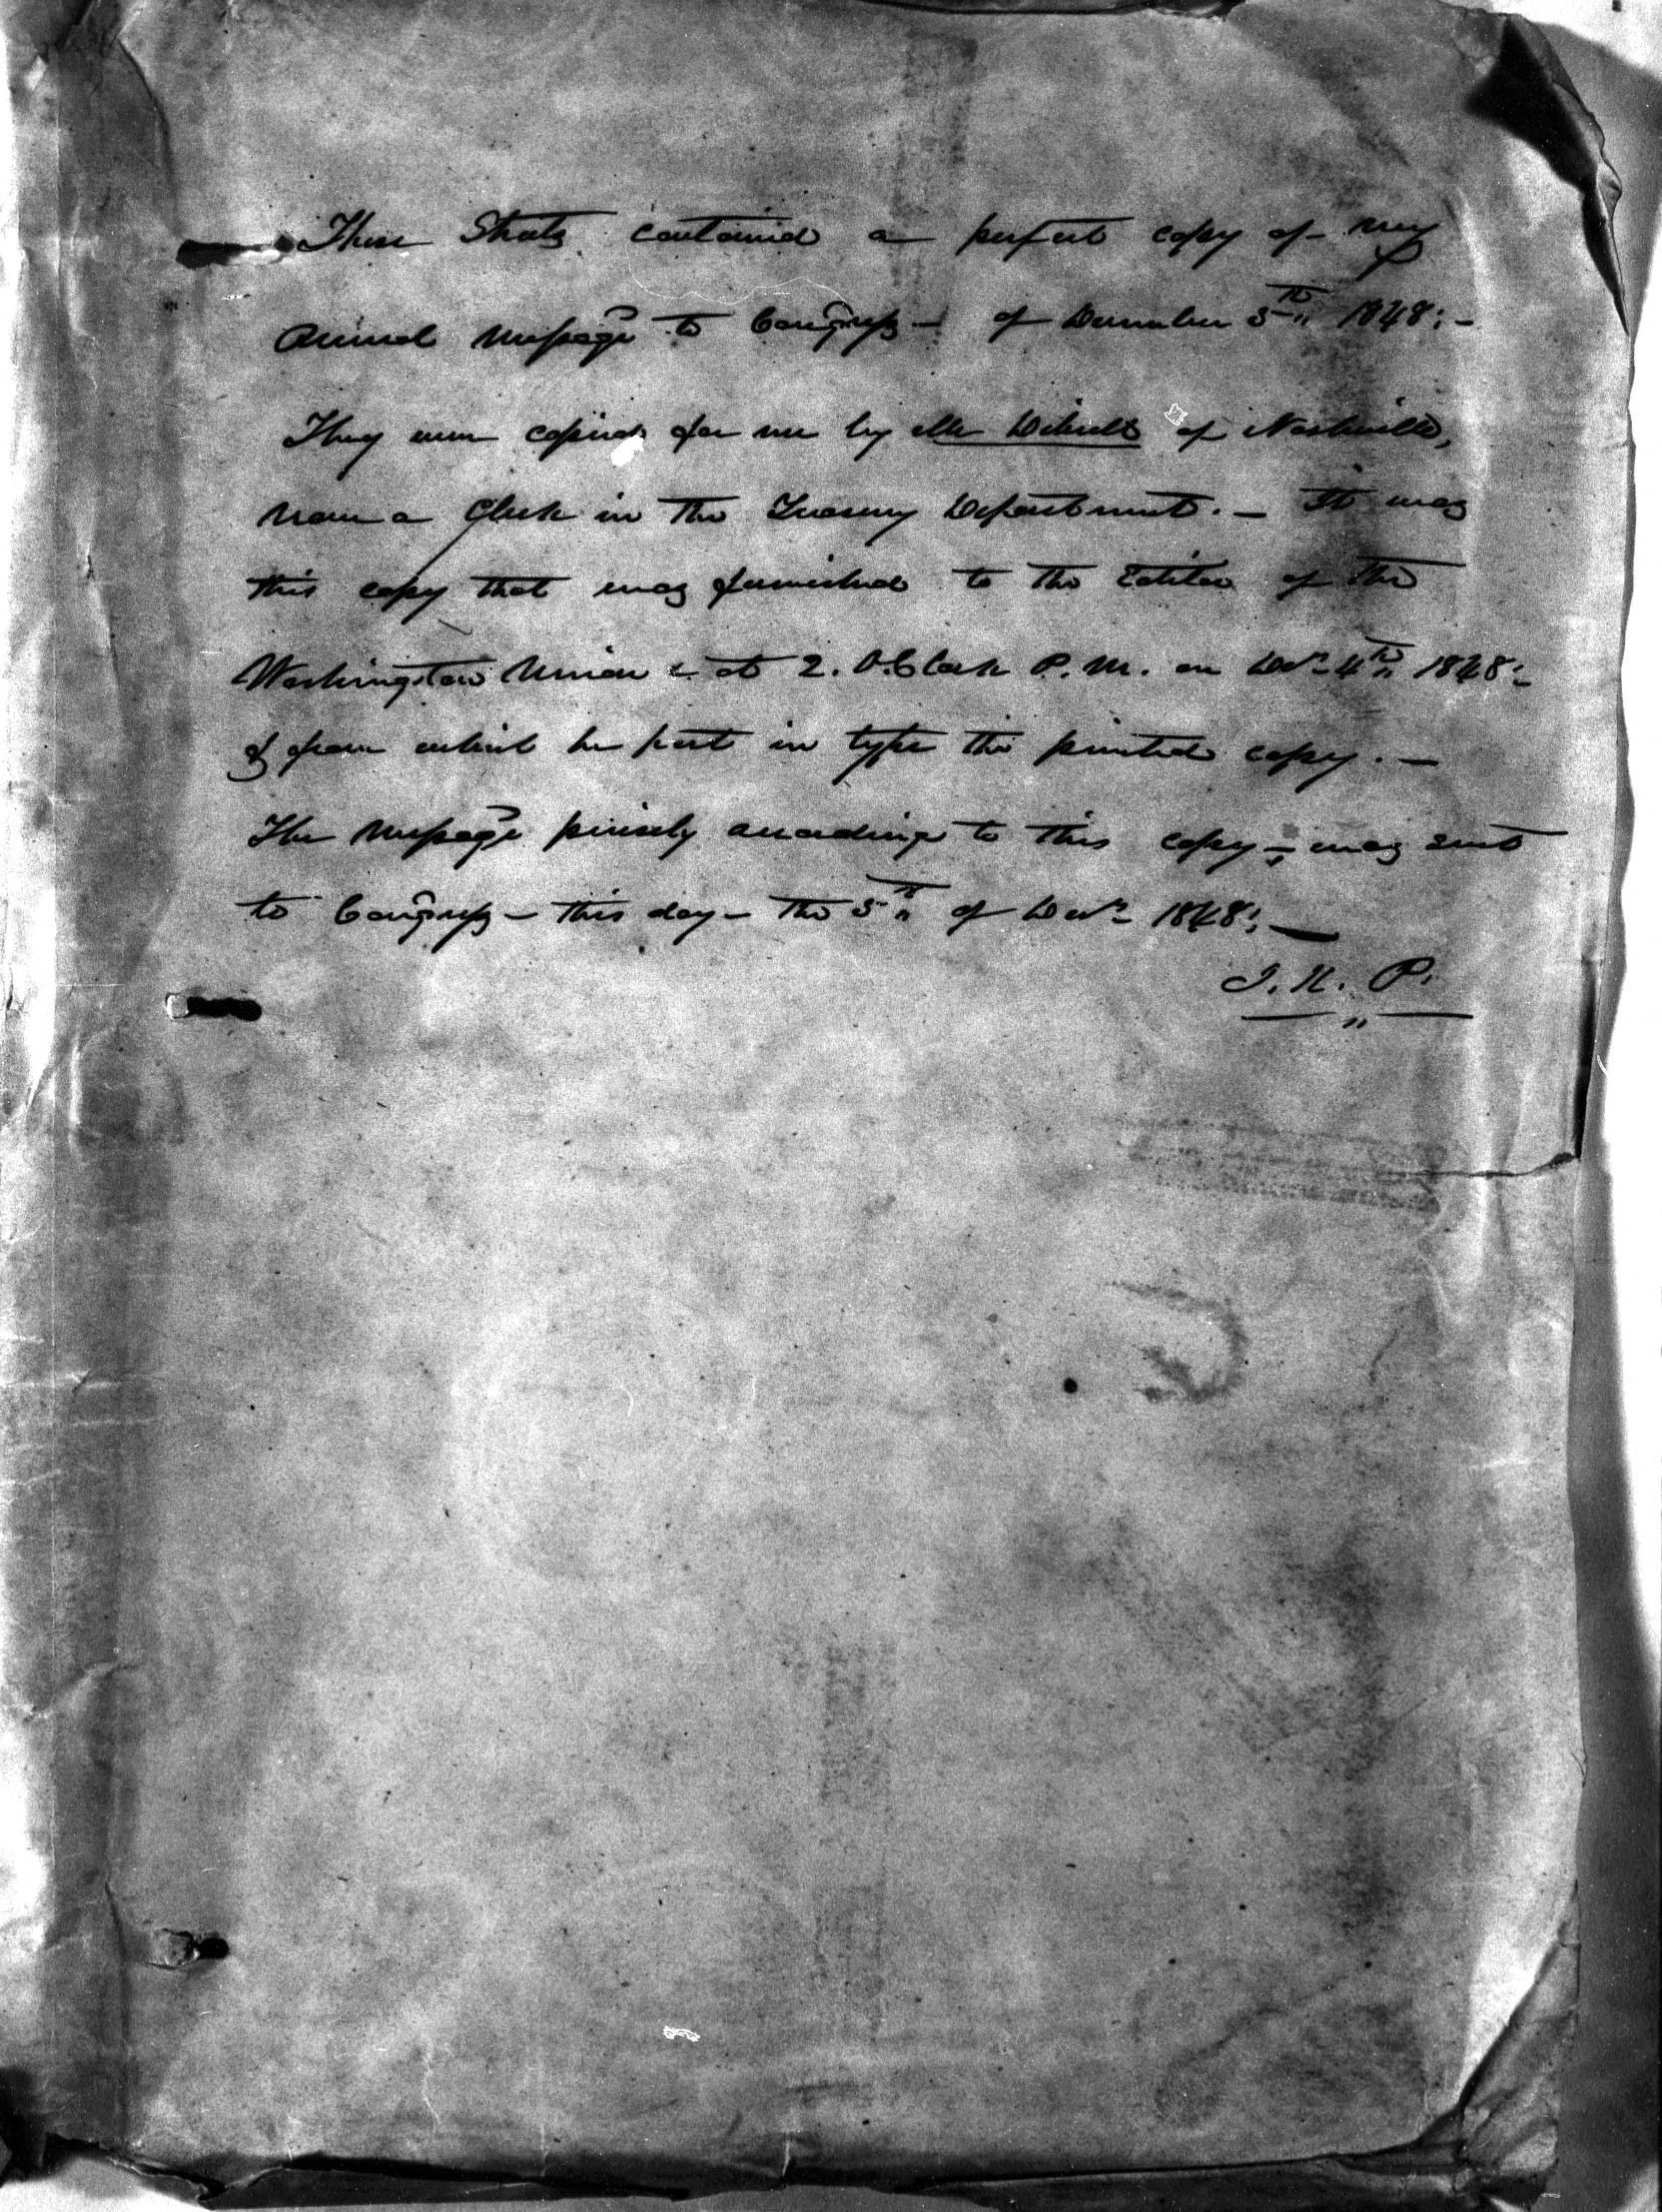 These Sheets contained a perfect copy of my
Annual Message to Congress - of December 5th 1848:-
They were copied for me by Mr of Nashville,
now a Clerk in the Treasury Department. - It was
this copy that was furnished to the Editor of the
Washington Union - at 2. O.Clock P. M. on Decr 4th 1848:-
& from which he put in type the printed copy. -
The Message precisely according to this copy - was sent
to Congress - this day - the 5th of Decr 1848: -
J. K. P.